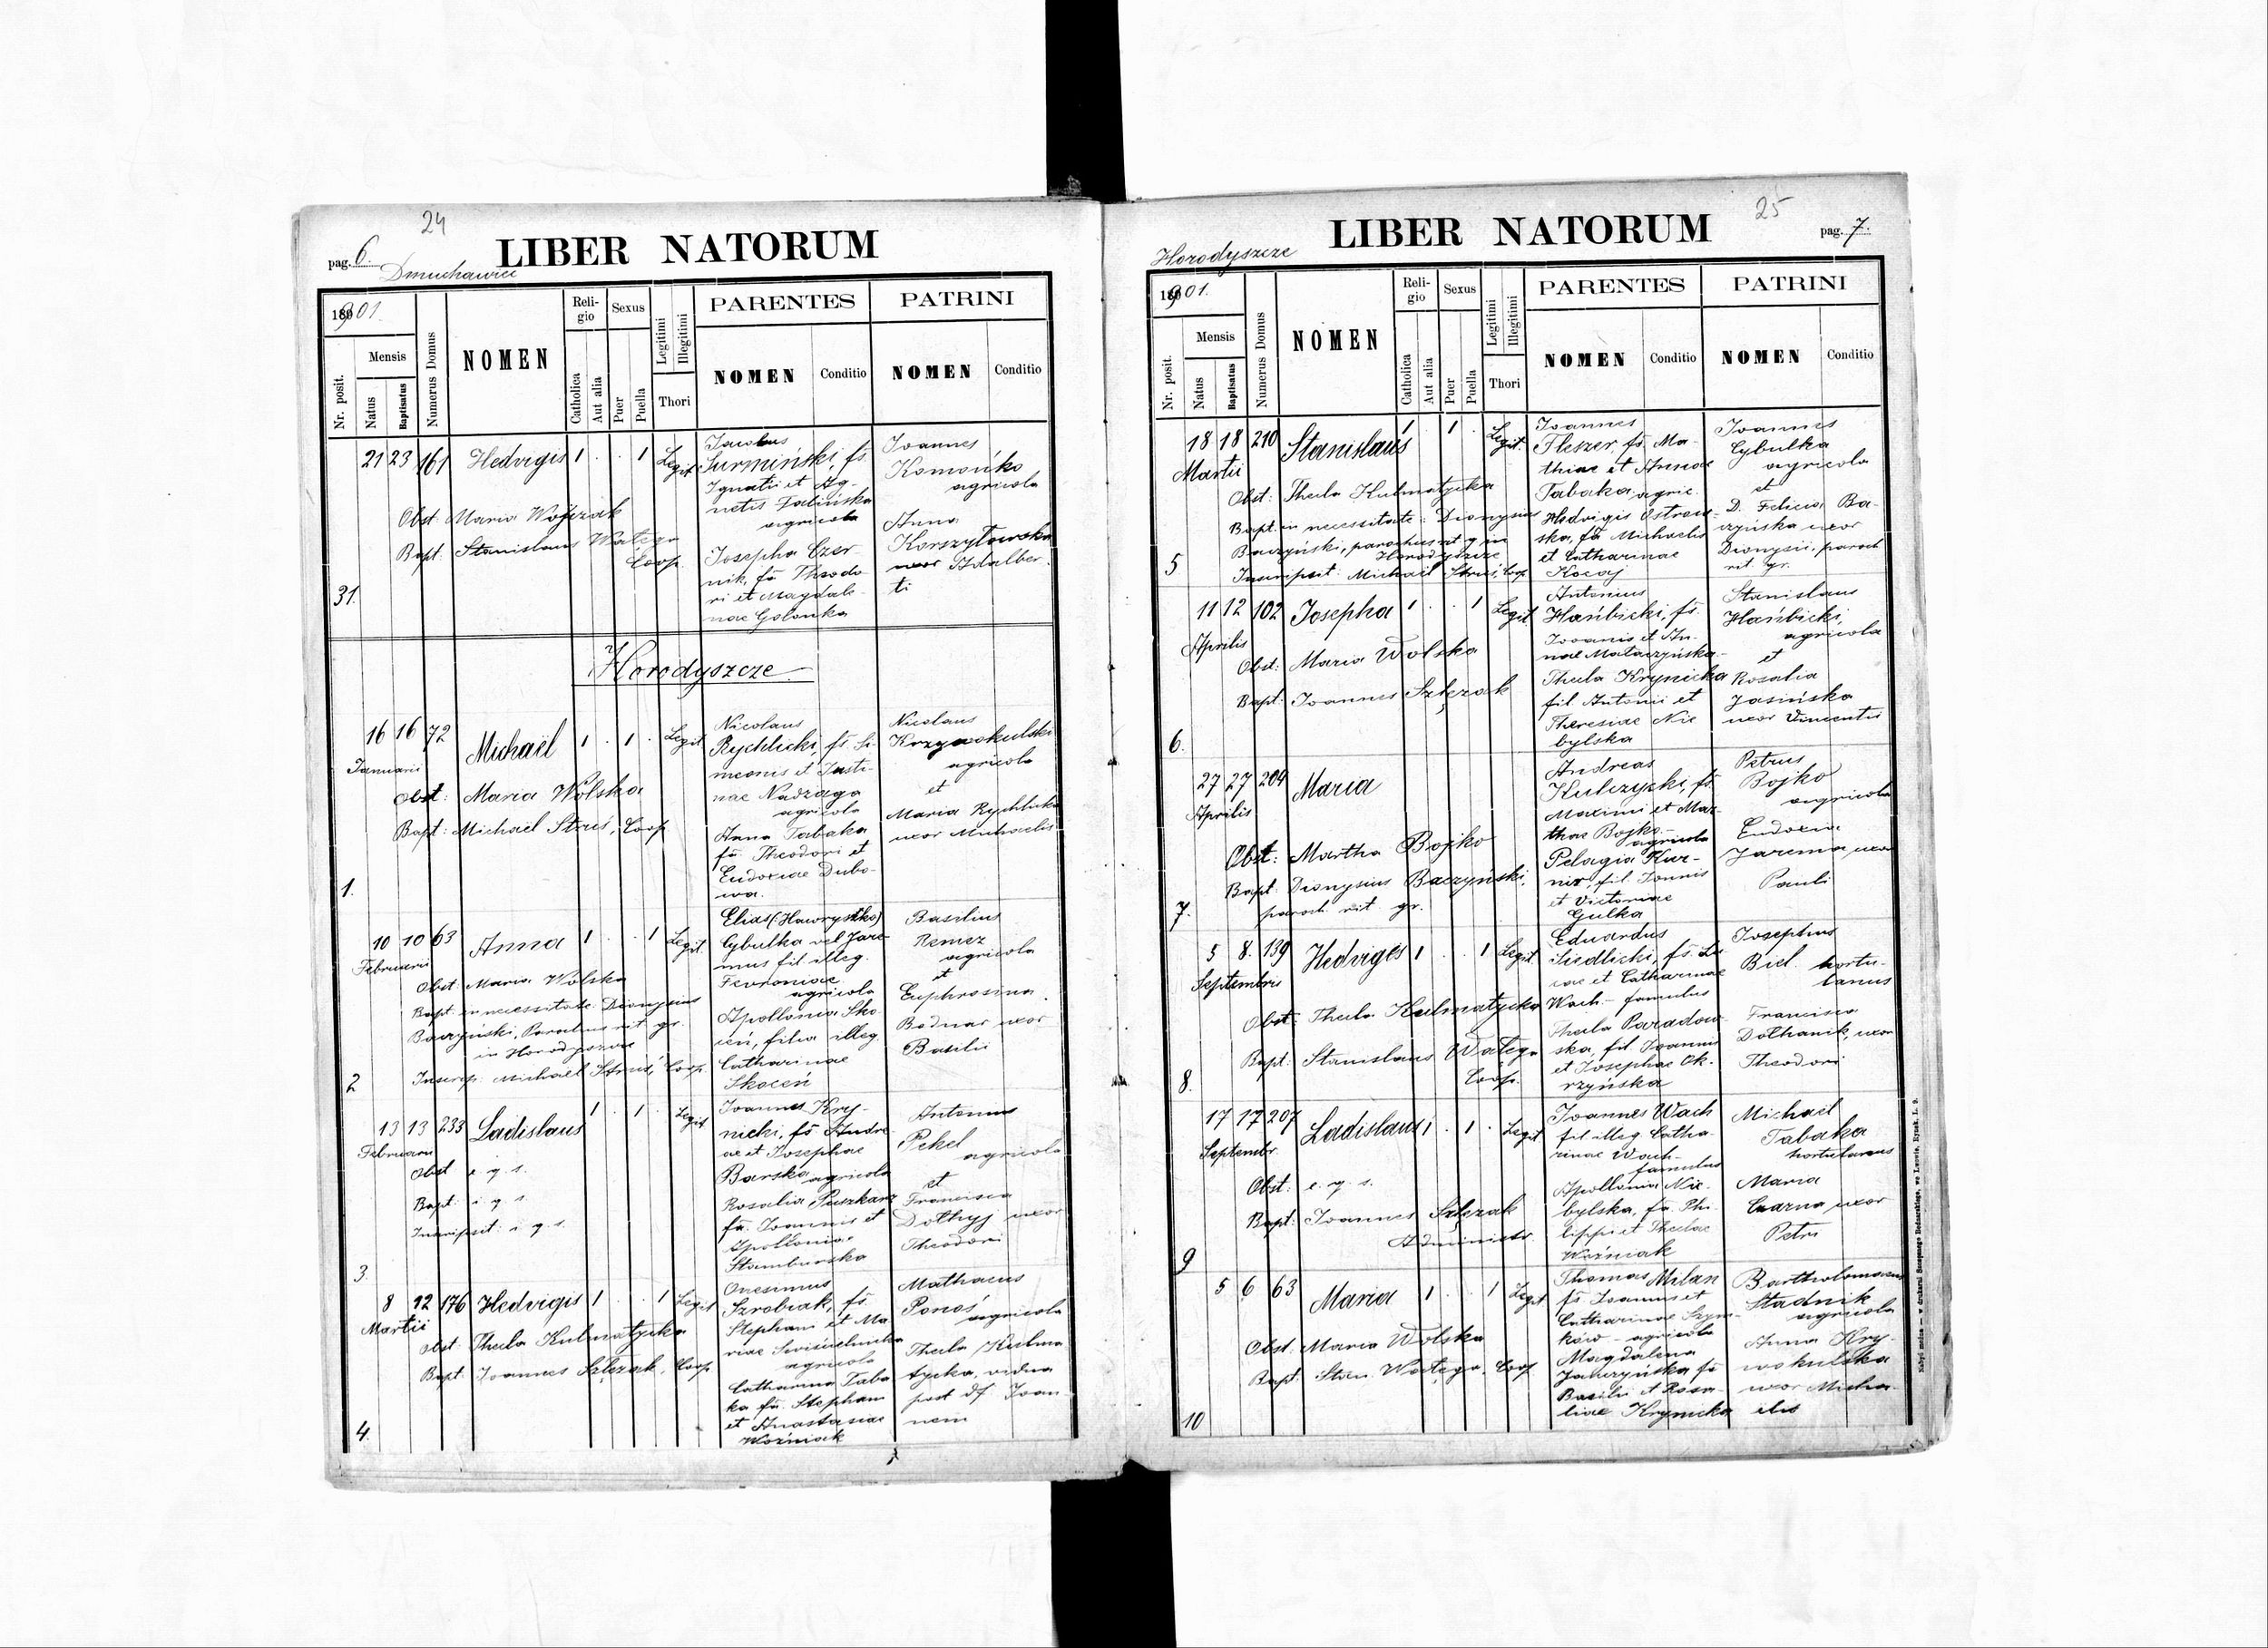 24
pag. 6.
LIBER NATORUM
Dmuchawice
1901.
Nr. posit.
Mensis
Natus
Baptisatus
Numerus Domus
NOMEN
Reli-
gio
Catholica
Aut alia
Sexus
Puer
Puella
Legitimi
Illegitimi
Thori
PARENTES
NOMEN
Conditio
PATRINI
NOMEN
Conditio
31.
21 23 161 Hedvigis 1 . . 1 Legit.
Obst: Maria Wojczak
Bapt: Stanislaus Watega
Coop.
Jacobus
Surmiński, fs.
Ignatii et Ag-
netis Zalińska
agricola
Josepha Czer-
nik, fa Theodo
ri et Magdale-
nae Golonka
Joannes
Komońko
agricola
Anna
Korszyłowska
uxor Adalber-
ti
Horodyszcze
1.
16 16 72 Michaël 1 . 1 . Legit
Januarii
Obst: Maria Wolska
Bapt: Michaël Struś, Coop
Nicolaus
Rychlicki, fs. Si-
meonis et Justi-
nae Nadraga
agricola
Anna Tabaka
fa. Theodori et
Eudoxiae Dubo-
wa.
Nicolaus
Krzywokulski
agricola
et
Maria Rychlicka
uxor Michaelis
2
10 10 63 Anna 1 . . 1 Legit.
Februarii
Obst: Maria Wolska
Bapt. in necessitate: Dionysius
Baczyński, Parochus rit. gr.
in Horodyszcze
Inscrip: Michaël Struś, Coop.
Elias (Hawryszko)
Cybulka vel Jare-
mus fil illeg.
Fevroniae
agricola
Apollonia Sko-
cen, filia illeg.
Catharinae
Skoceń
Basilius
Remez
agricola
et
Euphrosina
Bodnar uxor
Basilii
3.
13 13 233 Ladislaus 1 . 1 . Legit
Februarii
Obst e. q. s.
Bapt: i. q. s.
Inscripsit: i. q. s.
Joannes Kry-
nicki, fs Andre
ae et Josephae
Barska agricola
Rosalia Puszkarz
fa. Joannis et
Apolloniae
Stamburska
Antonius
Pekel
agricola
et
Francisca
Dołhyj uxor
Theodori
4.
8 12 176 Hedvigis 1 . . 1 Legit
Martii
Obst: Thecla Kulmatycka
Bapt: Joannes Szlęzak, Coop
Onesimus
Szrobiak, fs.
Stephani et Ma
riae
agricola
Catharina Taba
ka fa. Stephani
et Anastasiae
Woźniak
Mathaeus
Ponoś
agricola
Thecla Kulma
tycka, vidua
post df. Joan-
nem
25
Horodyszcze
LIBER NATORUM
pag. 7.
1901.
Nr. posit.
Mensis
Natus
Baptisatus
Numerus Domus
NOMEN
Reli-
gio
Catholica
Aut alia
Sexus
Puer
Puella
Legitimi
Illegitimi
Thori
PARENTES
NOMEN
Conditio
PATRINI
NOMEN
Conditio
5
18 18 210 Stanislaus 1 . 1 . Legit.
Martii
Obst: Thecla Kulmatycka
Bapt. in necessitate: Dionysius
Baczyński, parochus rit g in
Horodyszcze
Inscripsit: Michaël Struś, Coop
Joannes
Fleszer, fs. Ma-
thiae et Annae
Tabaka, agric.
Hedvigis Ostrow-
ska, fa Michaelis
et Catharinae
Kocaj
Joannes
Cybulka
agricola
et
D. Felicia Ba-
czyńska uxor
Dionysii, paroch
rit. gr.
6.
11 12 102 Josepha 1 . . 1 Legit.
Aprilis
Obst: Maria Wolska
Bapt: Joannes Szlęzak
Antonius
Hańbicki, fs.
Joannis et An-
nae Mataczyńska-
Thecla Krynicka
fil Antonii et
Theresiae Nie
bylska
Stanislaus
Hańbicki,
agricola
et
Rosalia
Jasińska
uxor Vincentii
7.
27 27 204 Maria
Aprilis
Obst: Martha Bojko
Bapt: Dionysius Baczyński,
paroch. rit. gr.
Andreas
Kulczycki, fs.
Maximi et Mar-
thae Bojko.-
agricola
Pelagia Kur-
nix, fil. Joannis
et Victoriae
Gulka
Petrus
Bojko
agricola
Eudoxia
Jarema uxor
Pauli
8.
5 8. 139 Hedviges 1 . . 1 Legit
Septembris
Obst: Thecla Kulmatycka
Bapt: Stanislaus Watega
Coop.
Eduardus
Siedlicki, fs. Lu
cae et Catharinae
Wach - famulus
Thecla Paradow-
ska, fil. Joannis
et Josephae Ok-
rzyńska
Josephus
Biel. hortu-
lanus
Francisca
Dołhanik, uxor
Theodori
9
17 17 207 Ladislaus 1 . 1 . Legit
Septembr.
Obst: e. q. s.
Bapt: Joannes Szlęzak
Administr.
Joannes Wach
fil illeg. Catha-
rinae Wach-
famulus
Apollonia Nie-
bylska, fa. Phi-
lippi et Theclae
Woźniak
Michaël
Tabaka
hortulanus
Maria
Czarna uxor
Petri
10
5 6 63 Maria 1 . . 1 Legit
Obst: Maria Wolska
Bapt: Stan. Watega, Coop
Thomas Milan
fs Joannis et
Catharinae Szym-
ków - agricola
Magdalena
Janczyńska fa
Basilii et Rosa-
liae Krynicka
Bartholomaeus
Stadnik
agricola
Anna Kry-
wokulska
uxor Micha-
elis